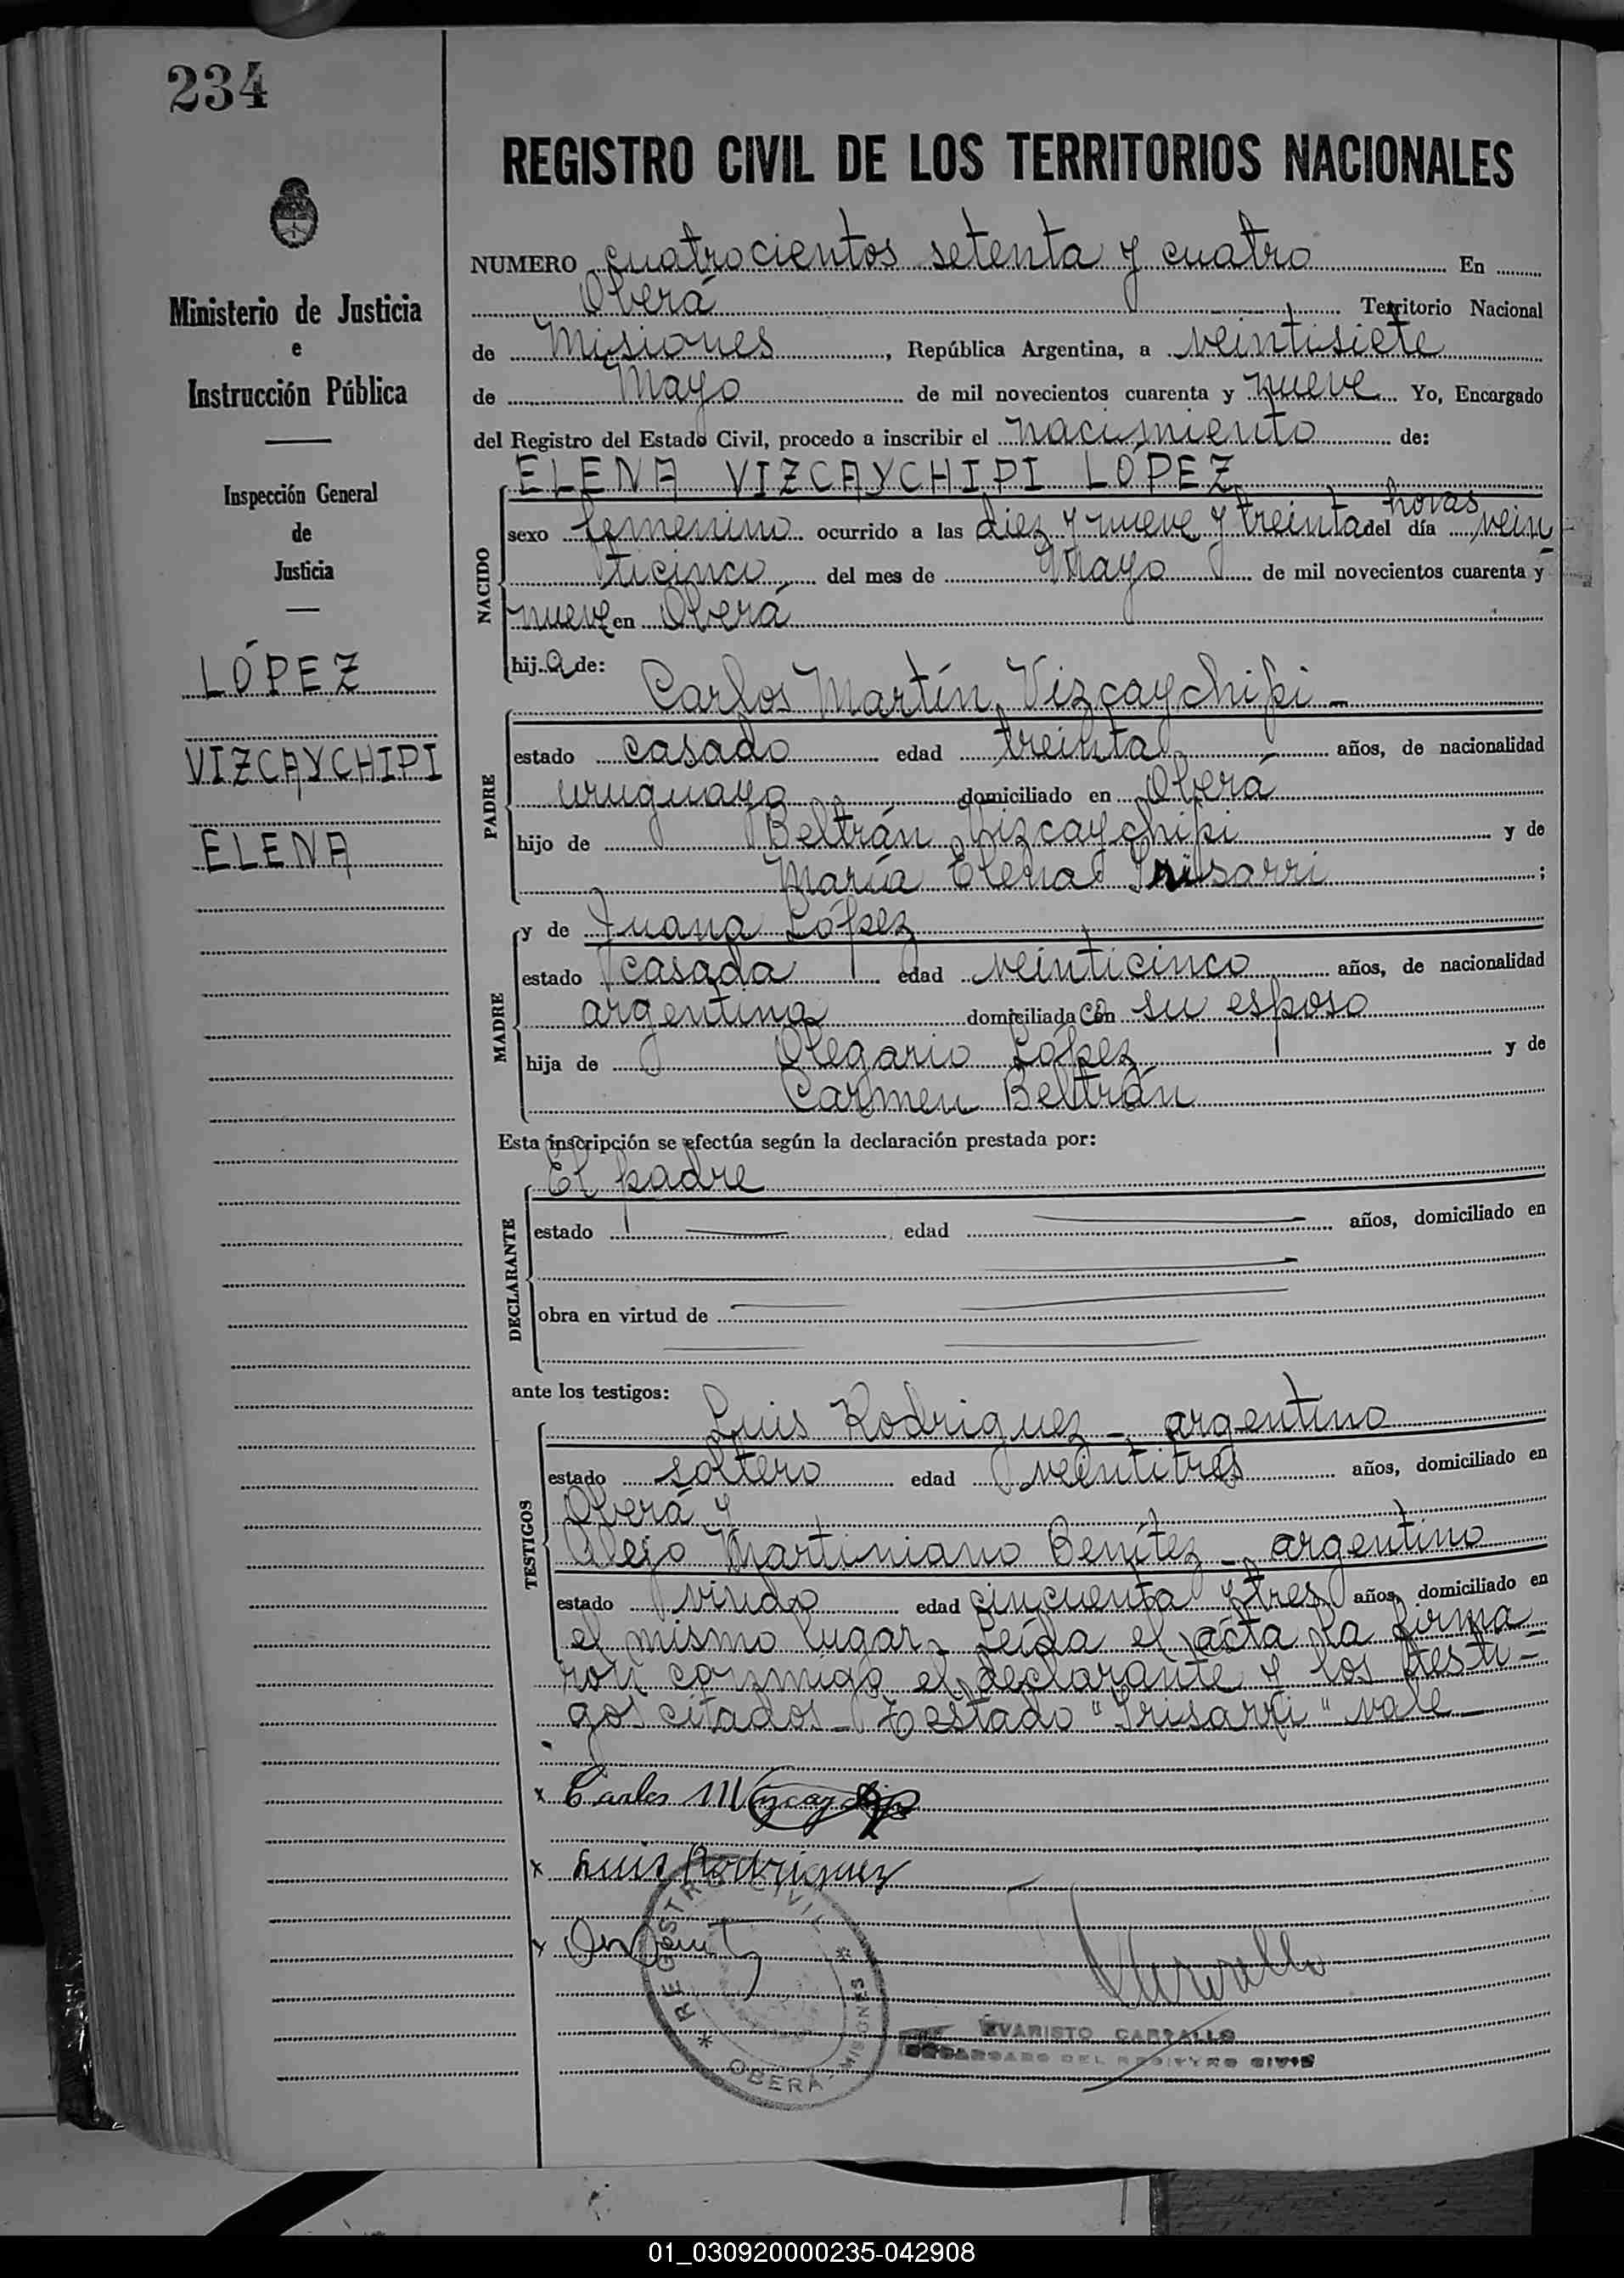 234
REGISTRO CIVIL DE LOS TERRITORIOS NACIONALES
Ministerio de Justicia
e
Instrucción Pública
Inspección General
de
Justicia
LÓPEZ
VIZCAYCHIPI
ELENA
NUMERO cuatrocientos setenta y cuatro En
Oberá Territorio Nacional
de Misiones, República Argentina, a veintisiete
de Mayo de mil novecientos cuarenta y nueve Yo, Encargado
del Registro del Estado Civil, procedo a inscribir el nacimiento de:
NACIDO
ELENA VIZCAYCHIPI LÓPEZ
sexo femenino ocurrido a las diez y nueve y treinta horas del día vein
ticinco del mes de Mayo de mil novecientos cuarenta y
nueve en Oberá
hija de:
PADRE
Carlos Martín Vizcaychipi -
estado casado edad treinta años, de nacionalidad
uruguaya domiciliado en Oberá
hijo de Beltrán Vizcaychipi y de
María Elena Irisarri ;
MADRE
y de Juana López
estado casada edad veinticinco años, de nacionalidad
argentina domiciliada con su esposo
hija de Olegario López y de
Carmen Beltrán
Esta inscripción se efectúa según la declaración prestada por:
DECLARANTE
El padre
estado edad años, domiciliado en
obra en virtud de
ante los testigos:
TESTIGOS
Luis Rodriguez - argentino
estado soltero edad veintitres años, domiciliado en
Oberá y
Alejo Martiniano Benítez - argentino
estado viudo edad cincuenta y tres años, domiciliado en
el mismo lugar. Leída el acta la firma
ron conmigo el declarante y los testi-
gos citados - Testado "Irisarri" vale -
x Carlos M Vizcaychipi
x Luis Rodriguez
x
REGISTRO CIVIL
OBERÁ - MISIONES
EVARISTO CARBALLO
ENCARGADO DEL REGISTRO CIVIL
01_030920000235-042908